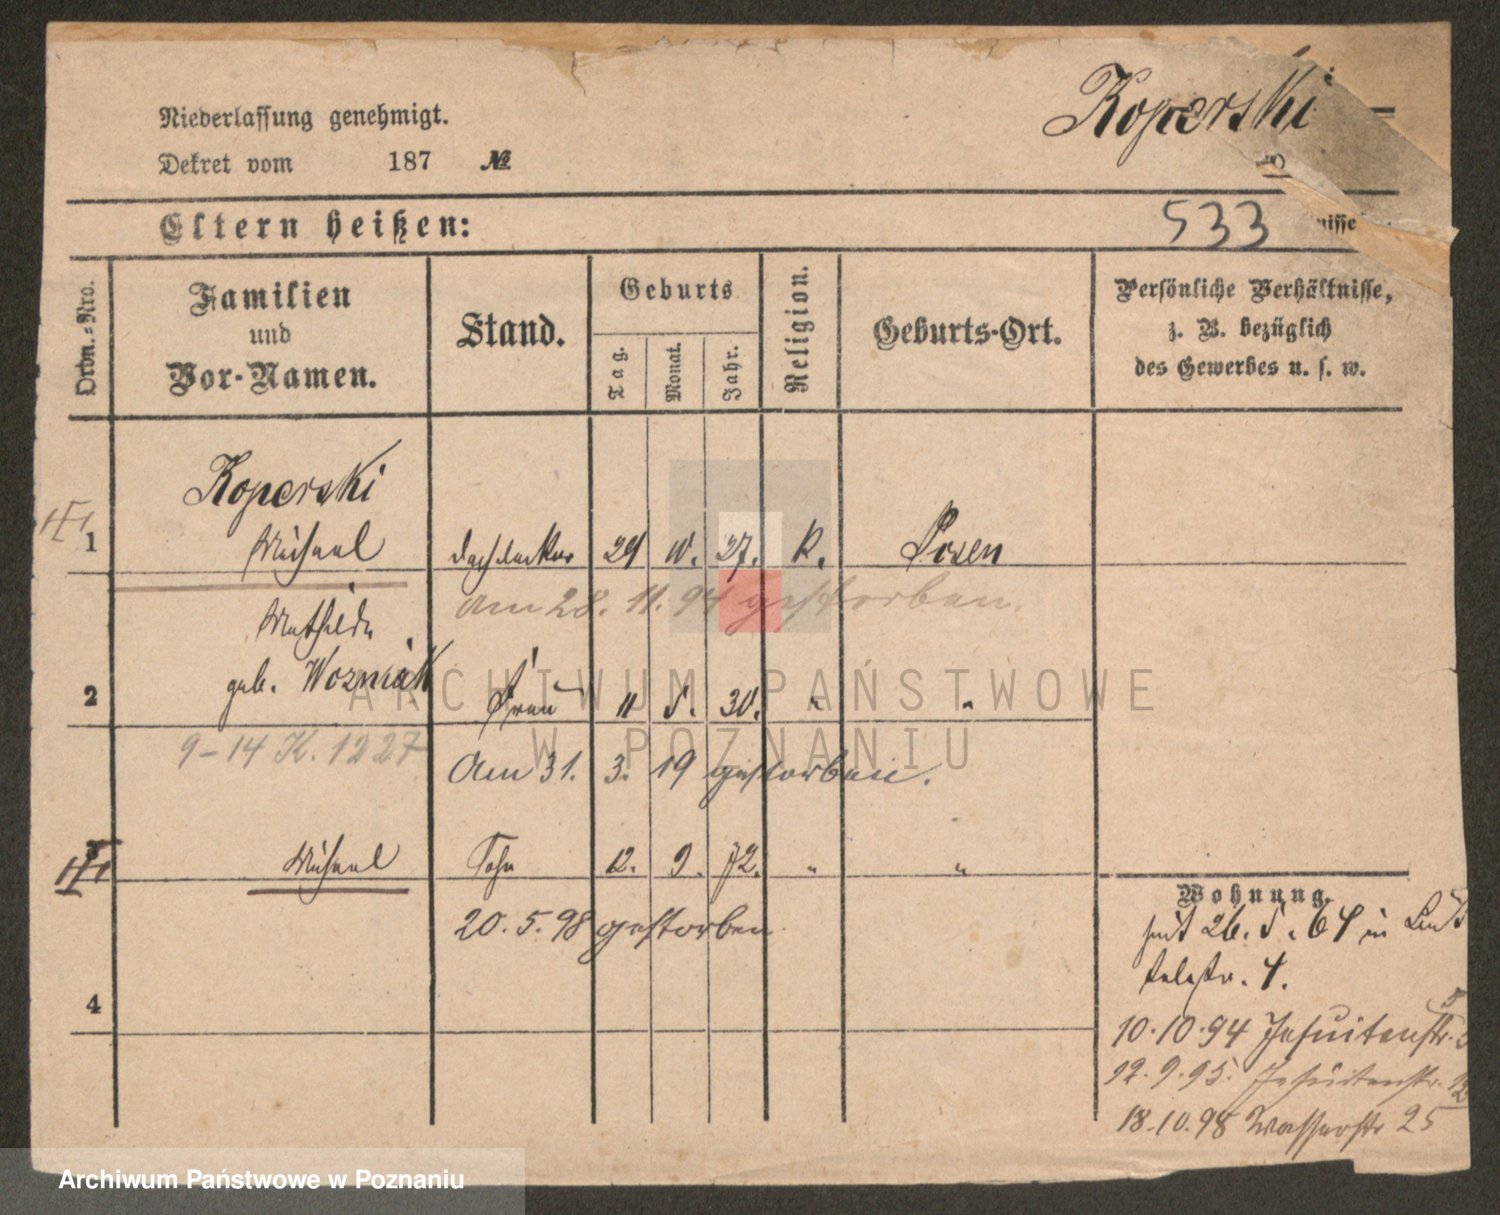 Koperski
Niederlassung genehmigt.
Dekret vom 187 №
Eltern heißen:
533
Ordn.-Nro.
Familien
und
Vor-Namen.
Stand.
Geburts
Tag.
Monat.
Jahr.
Religion.
Geburts-Ort.
Persönliche Verhältnisse,
z. B. bezüglich
des Gewerbes u. s. w.
Koperski
1 Michael Dachdecker 29 27. K. Posen
am 28. 11. 94 gestorben.
Mathilde
2 geb. Wozniak Frau 11 5. 30. " "
9-14 K. 1227
Am 31. 3. 19 gestorben.
3 Michael Sohn 12. 9. 72. " "
20. 5. 98 gestorben
4
Wohnung.
seit 26. 5. 64 in
10.10.94 Jesuitenstr. 5
12.9.95. Jesuitenstr. 12
18.10.98 Wasserstr 25
ARCHIWUM PAŃSTWOWE
W POZNANIU
Archiwum Państwowe w Poznaniu